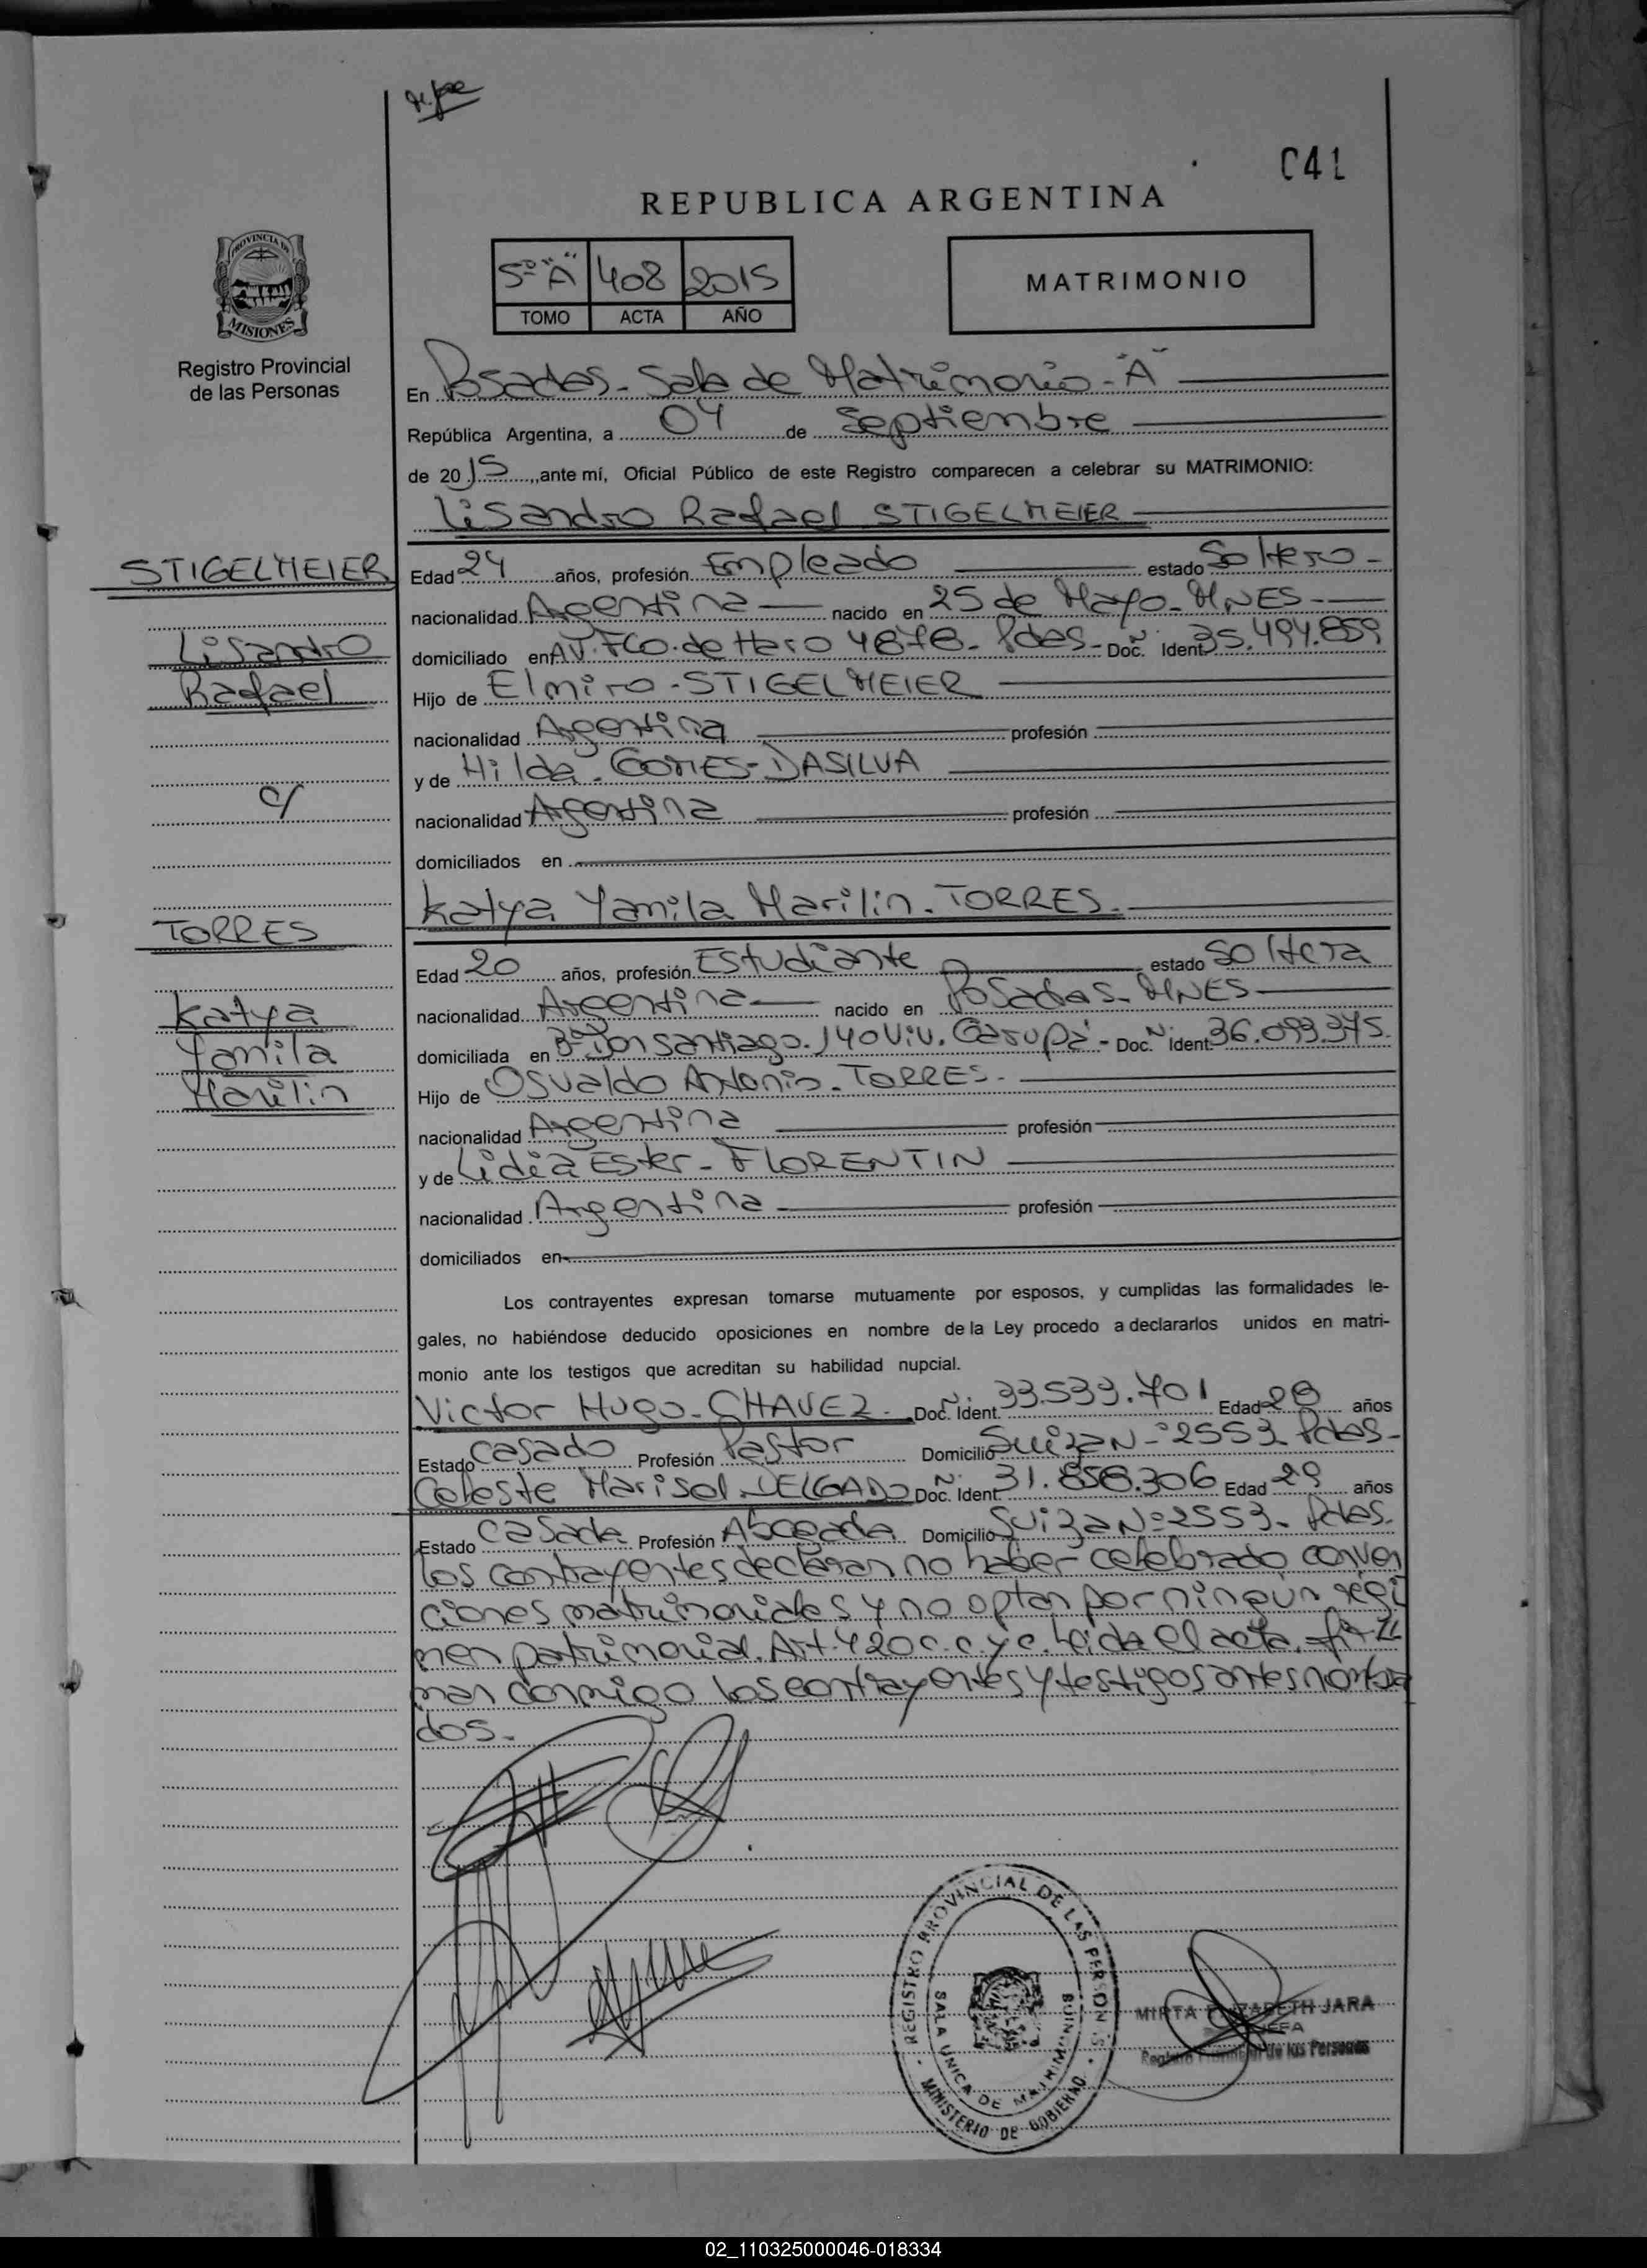 C41
REPUBLICA ARGENTINA
5º "A" 408 2015
TOMO ACTA AÑO
MATRIMONIO
PROVINCIA DE
MISIONES
Registro Provincial
de las Personas
En Posadas - Sala de Matrimonio - "A"
República Argentina, a 04 de Septiembre
de 2015, ante mí, Oficial Público de este Registro comparecen a celebrar su MATRIMONIO:
Lisandro Rafael STIGELMEIER
STIGELMEIER
Edad 24 años, profesión Empleado estado Soltero -
nacionalidad Argentina nacido en 25 de Mayo - MNES -
Lisandro
domiciliado en AV. FCO. de Haro 4878 - Pdas - Doc. Nº Ident 35.494.859
Rafael
Hijo de Elmiro - STIGELMEIER
nacionalidad Argentina profesión
y de Hilda - GOMES - DASILVA
c/
nacionalidad Argentina profesión
domiciliados en
Katya Yamila Marilin - TORRES -
TORRES
Edad 20 años, profesión Estudiante estado Soltera
nacionalidad Argentina nacido en Posadas - MNES
Katya
domiciliada en Bº Don Santiago. 140 Viv. Garupá - Doc. Nº Ident 36.093.375
Yamila
Marilin
Hijo de Osvaldo Antonio - TORRES -
nacionalidad Argentina profesión
y de Lidia Ester - FLORENTIN
nacionalidad Argentina profesión
domiciliados en
Los contrayentes expresan tomarse mutuamente por esposos, y cumplidas las formalidades le-
gales, no habiéndose deducido oposiciones en nombre de la Ley procedo a declararlos unidos en matri-
monio ante los testigos que acreditan su habilidad nupcial.
Victor Hugo - CHAVEZ - Doc. Nº Ident. 33.539.701 Edad 28 años
Estado Casado Profesión Pastor Domicilio Suiza Nº 2553 Pdas -
Celeste Marisol DELGADO Doc. Nº Ident. 31.858.306 Edad 29 años
Estado Casada Profesión Abogada Domicilio Suiza Nº 2553 - Pdas.
los contrayentes declaran no haber celebrado conven
ciones matrimoniales y no optan por ningún régi
men patrimonial. Art. 420 c.c. y c. Leida el acta, fir
man conmigo los contrayentes y testigos antes nombra
dos -
REGISTRO PROVINCIAL DE LAS PERSONAS
SALA UNICA DE MATRIMONIO
MINISTERIO DE GOBIERNO
MIRTA ELIZABETH JARA
JEFA
Registro Provincial de las Personas
02_110325000046-018334